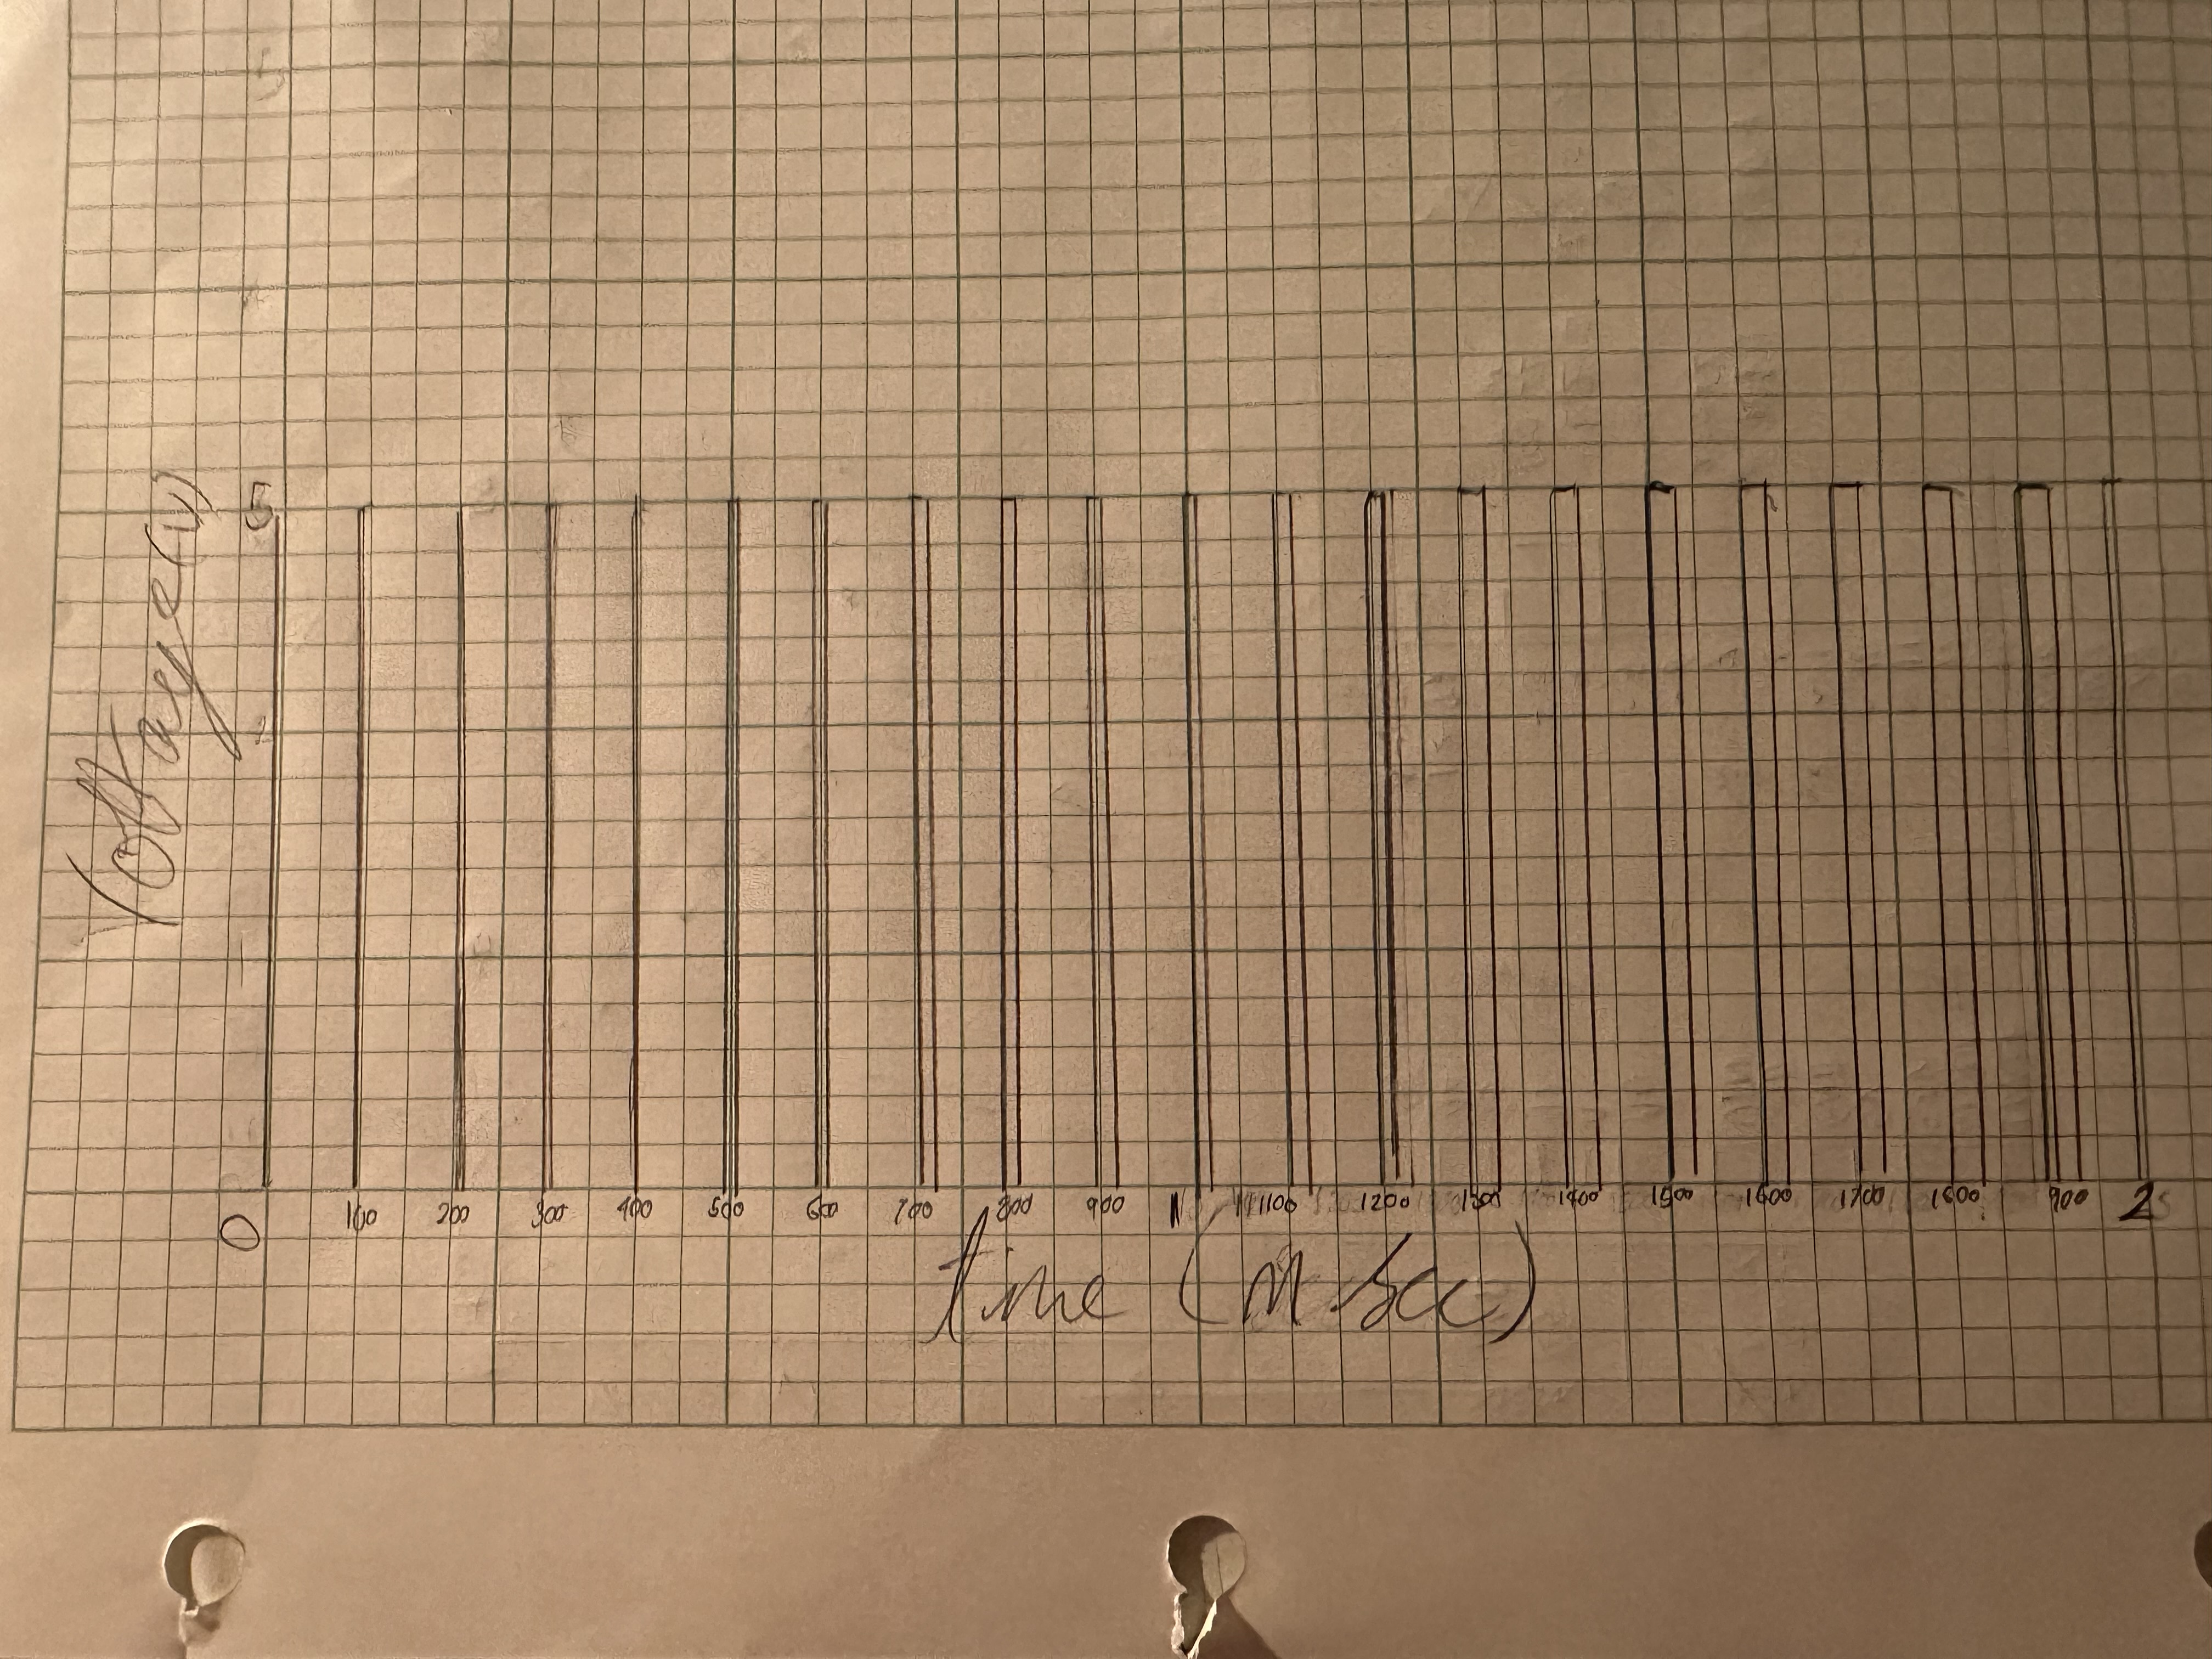 Voltage (v)
5
0 100 200 300 400 500 600 700 800 900 1100 1200 1300 1400 1500 1600 1700 1800 900 2
time (m sec)